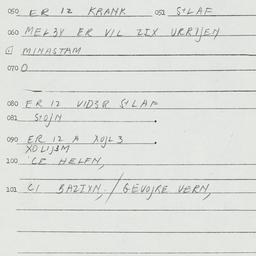 050 ER 12 KRANK 051 S+LAF
060 MEL3Y ER VIL ZIX URRIJEN
MINASTAM
070 O
080 ER 12 VID3R S+LAF
081 S+OJN
090 ER 12 A XOJL3
XOLIJ3M
100 'CE HELFN,
101 CI BAZIXN, / GEVOJRE VERN,